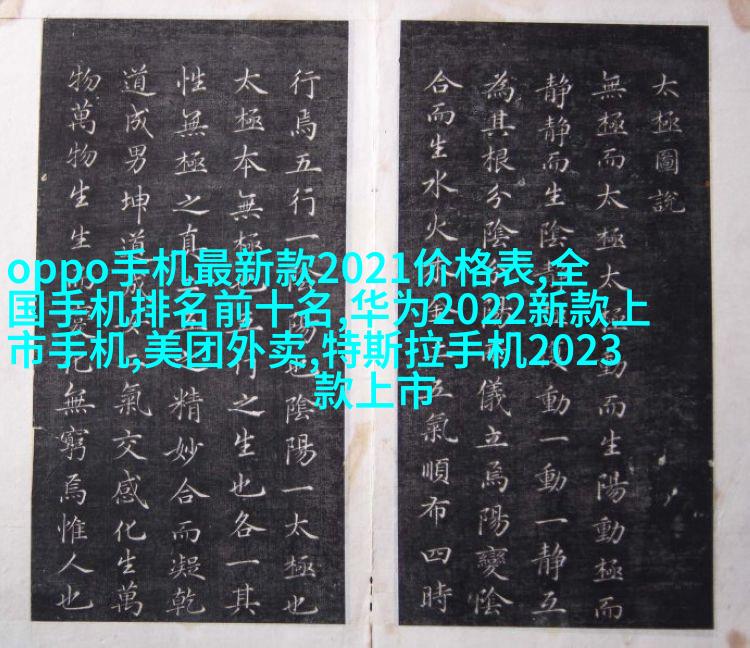 oppo手机最新款2021价格表,全
国手机排名前十名,华为2022新款上
市手机,美团外卖,特斯拉手机2023
款上市
太極圖說
無極而太極太極動而生陽動極而
静静而生陰静動一動一静互
為其根分陰陽儀立焉陽變陰
合而生水火五氣順布四時
行焉五行一陰陽也陰陽一太極也
太極本無極也行之生也各一其
性無極之真精妙合而凝乾
道成男坤道成氣交感化生萬
物萬物生生而化無窮焉惟人也